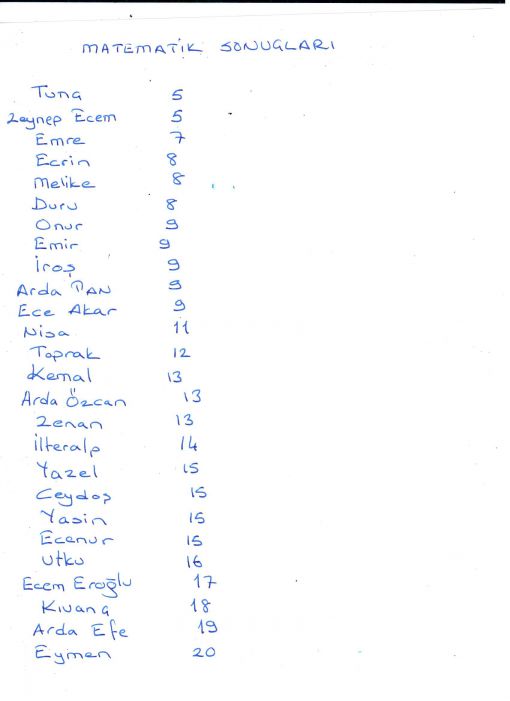 MATEMATİK SONUÇLARI
Tunç 5
Zeynep Ecem 5
Emre 7
Ecrin 8
Melike 8
Duru 8
Onur 9
Emir 9
İroş 9
Arda PAN 9
Ece Akar 9
Nisa 11
Toprak 12
Kemal 13
Arda Özcan 13
Zenan 13
İlteralp 14
Yazel 15
Ceydoş 15
Yasin 15
Ecenur 15
Utku 16
Ecem Eroğlu 17
Kıvanç 18
Arda Efe 19
Eymen 20